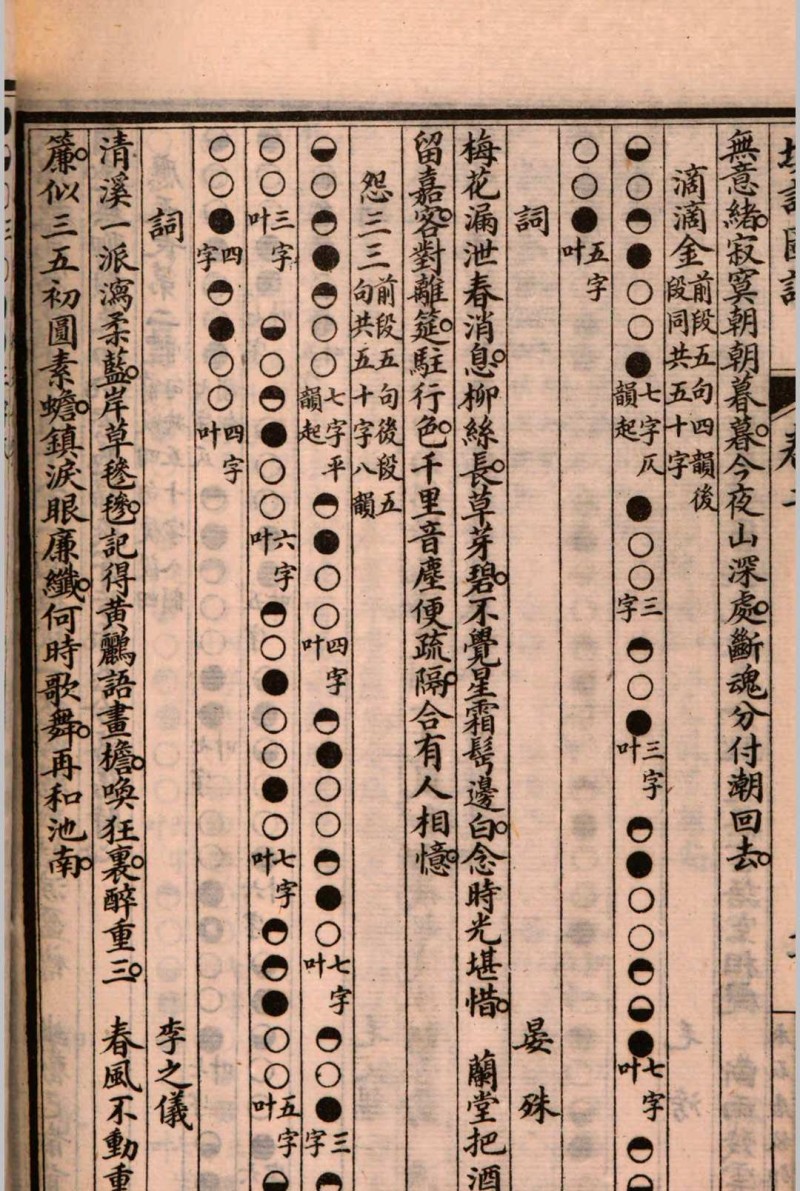 無意緒。寂寞朝朝暮暮。今夜山深處。斷魂分付潮回去。
滴滴金 前段五句四韻後段同共五十字
◒○◓●○○●七字仄韻起●○○三字◓○●三字叶◓●○○◓◒●七字叶◓◒
○○●五字叶
詞 晏殊
梅花漏泄春消息。柳絲長。草芽碧。不覺星霜鬂邊白。念時光堪惜。 蘭堂把酒
留嘉客。對離筵。駐行色。千里音塵便疏隔。合有人相憶。
怨三三 前段五句後段五句共五十字八韻
◒○◓●◓○○七字平韻起◓●○○四字叶◓●○○◓●○七字叶◓○●三字◓
○○三字叶 ◒○◓●○○六字叶◓○●○○●○七字叶◓◓●○○五字叶◒
○○●四字◓●○○四字叶
詞 李之儀
清溪一派瀉柔藍。岸草毶毶。記得黃鸝語畫檐。喚狂裏。醉重三。 春風不動重
簾。似三五初圓素蟾。鎮淚眼廉纖。何時歌舞。再和池南。